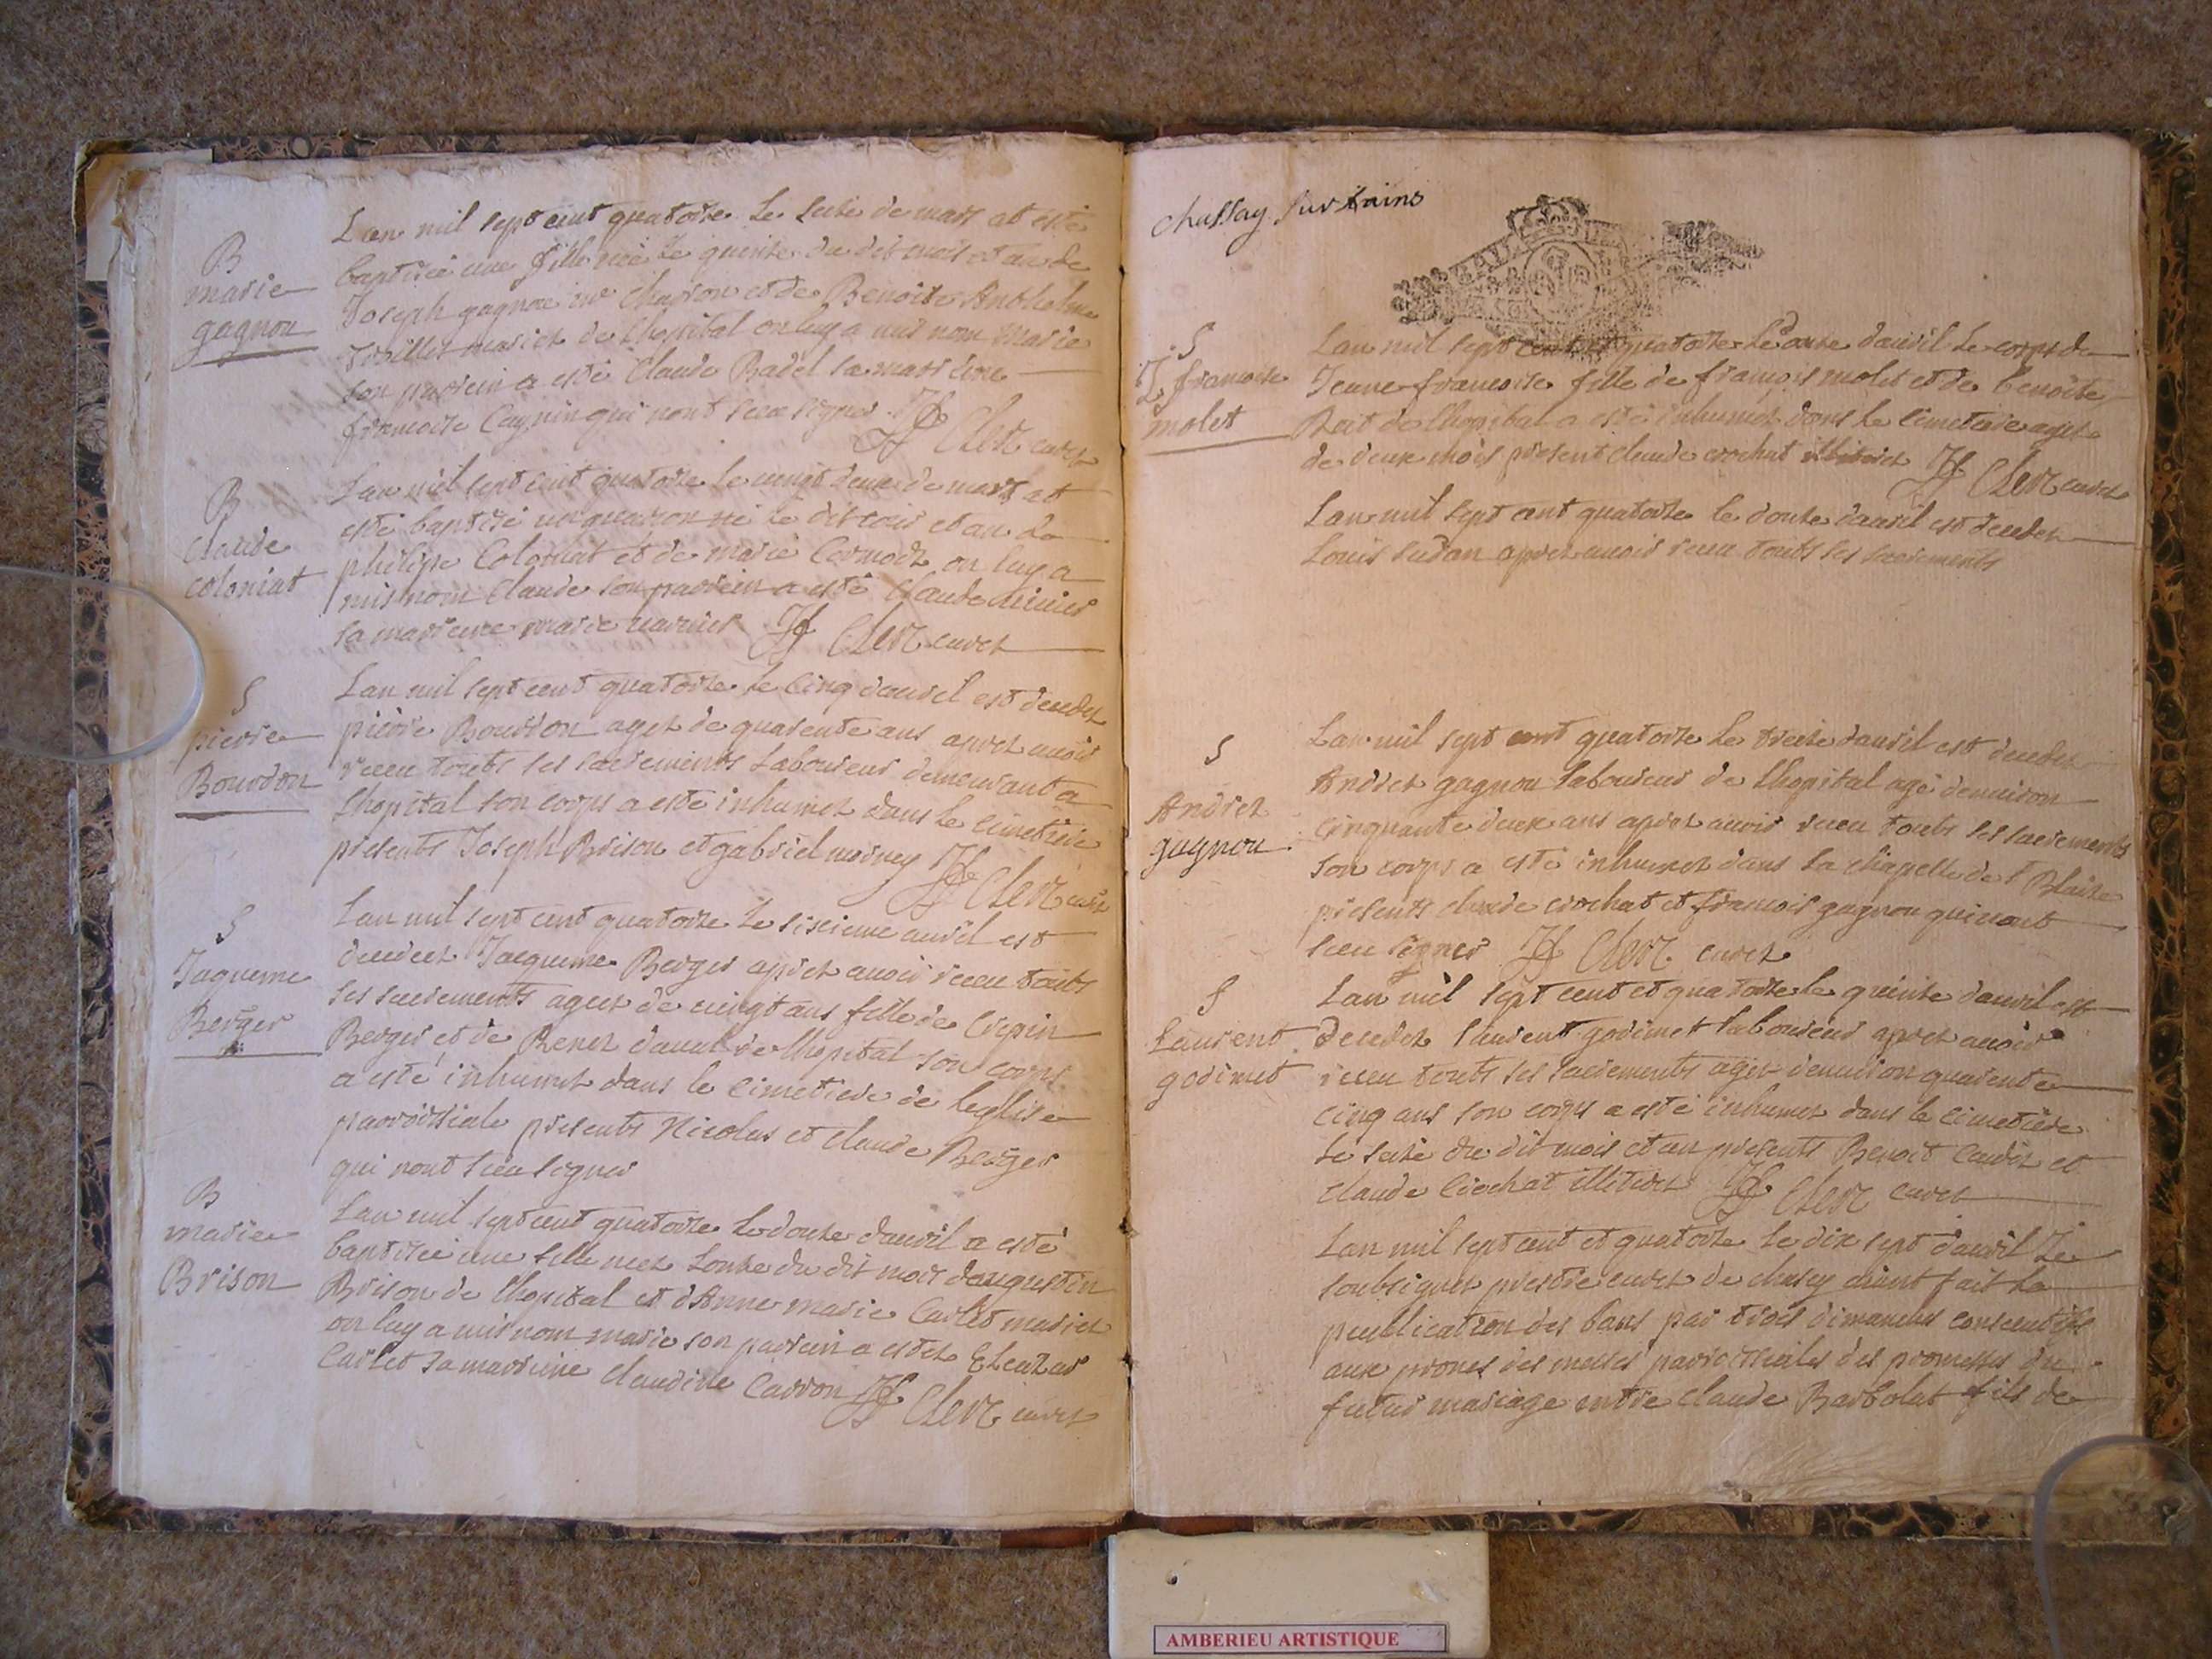 B
marie
gagnou
Lan mil sept cent quatorze le seize de mars at esté
baptisée une fille neé le quinze du dit mois et an de
Joseph gagnou me charon et de Benoite Anthelme
mariez de Lhopital on luy a mis nom marie
son parrein a esté Claude Badel sa marreine
francoise Cagnin qui nont sceu signer JF Clerc curez
B
Claude
coloniat
Lan mil sept cent quatorze le vingt deux de mars at
esté baptisé un garcon né le dit jour et an de
philipe Coloniat et de marie on luy a
mis nom Claude son parrein a esté Claude
sa marreine marie JF Clerc curez
S
pierre
Bourdon
Lan mil sept cent quatorze le cinq davril est decedez
pierre Bourdon agez de quarente ans aprez avoir
receu touts ses sacrements Laboureur demeurant a
Lhopital son corps a esté inhumez dans le cimetiere
presents Joseph Brison et gabriel morney JF Clerc curé
S
Jaqueme
Berger
Lan mil sept cent quatorze le siscieme avril est
decedeez Jacqueme Berger aprez avoir receu touts
ses sacrements ageez de vingt ans fille de Crepin
Berger et de Renez daval de lhopital son corps
a esté inhumez dans le cimetiere de leglise
parroissiale presents Nicolas et claude Berger
qui nont sceu signer
B
marie
Brison
Lan mil sept cent quatorze le douze davril a esté
baptisée une fille neez lonze du dit mois daugustin
Brison de lhopital et dAnne marie Carlet mariez
on luy a mis nom marie son parrein a estez Eleazar
Carlet sa marreine claudine Carron JF Clerc curez
chassay sur Lains
S
J. francoise
molet
Lan mil sept cent quatorze le onze davril le corps de
Jeanne francoise fille de françois molet et de benoite
Roit de lhopital a esté inhumez dans le cimetiere agez
de deux mois present claude crochat illitirez JF Clerc curez
Lan mil sept cent quatorze le douze davril est decedez
Louis sudan aprez avoir receu touts ses sacrements
S
Andrez
gagnou
Lan mil sept cent quatorze le treize davril est decedez
Andrez gagnou laboureur de lhopital agé denviron
cinquante deux ans aprez avoir receu touts ses sacrements
son corps a esté inhumez dans la chapelle de st Blaise
presents claude crochat et francois gagnou qui nont
sceu signer JF Clerc curez
S
Laurent
godimet
Lan mil sept cent et quatorze le quinze davril est
decedez laurent godimet laboureur aprez avoir
receu touts ses sacrements agez denviron quarente
cinq ans son corps a esté inhumez dans le cimetiere
le seize du dit mois et an presents Benoit et
claude Crochat illitirez JF Clerc curez
Lan mil sept cent et quatorze le dix sept davril Je
soubsignez prestre curez de chasey aiant fait la
publication des bans par trois dimanches consecutifs
aux prones des messes parroissiales des promesses du
futur mariage entre claude Barbolat fils de
AMBERIEU ARTISTIQUE